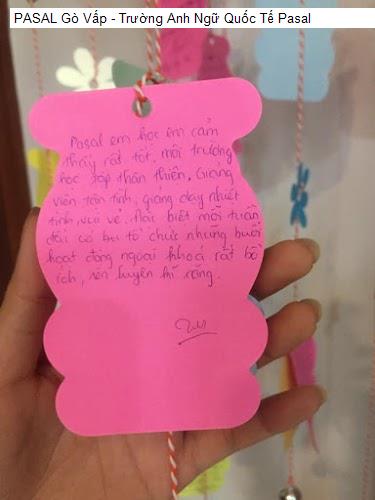 PASAL Gò Vấp - Trường Anh Ngữ Quốc Tế Pasal
Pasal em học em cảm
thấy rất tốt, môi trường
học tập thân thiện, Giảng
viên tận tình, giảng dạy nhiệt
tình, vui vẻ. Đặc biệt mỗi tuần
đều có tổ chức những buổi
hoạt động ngoại khoá rất bổ
ích, rèn luyện kĩ năng.